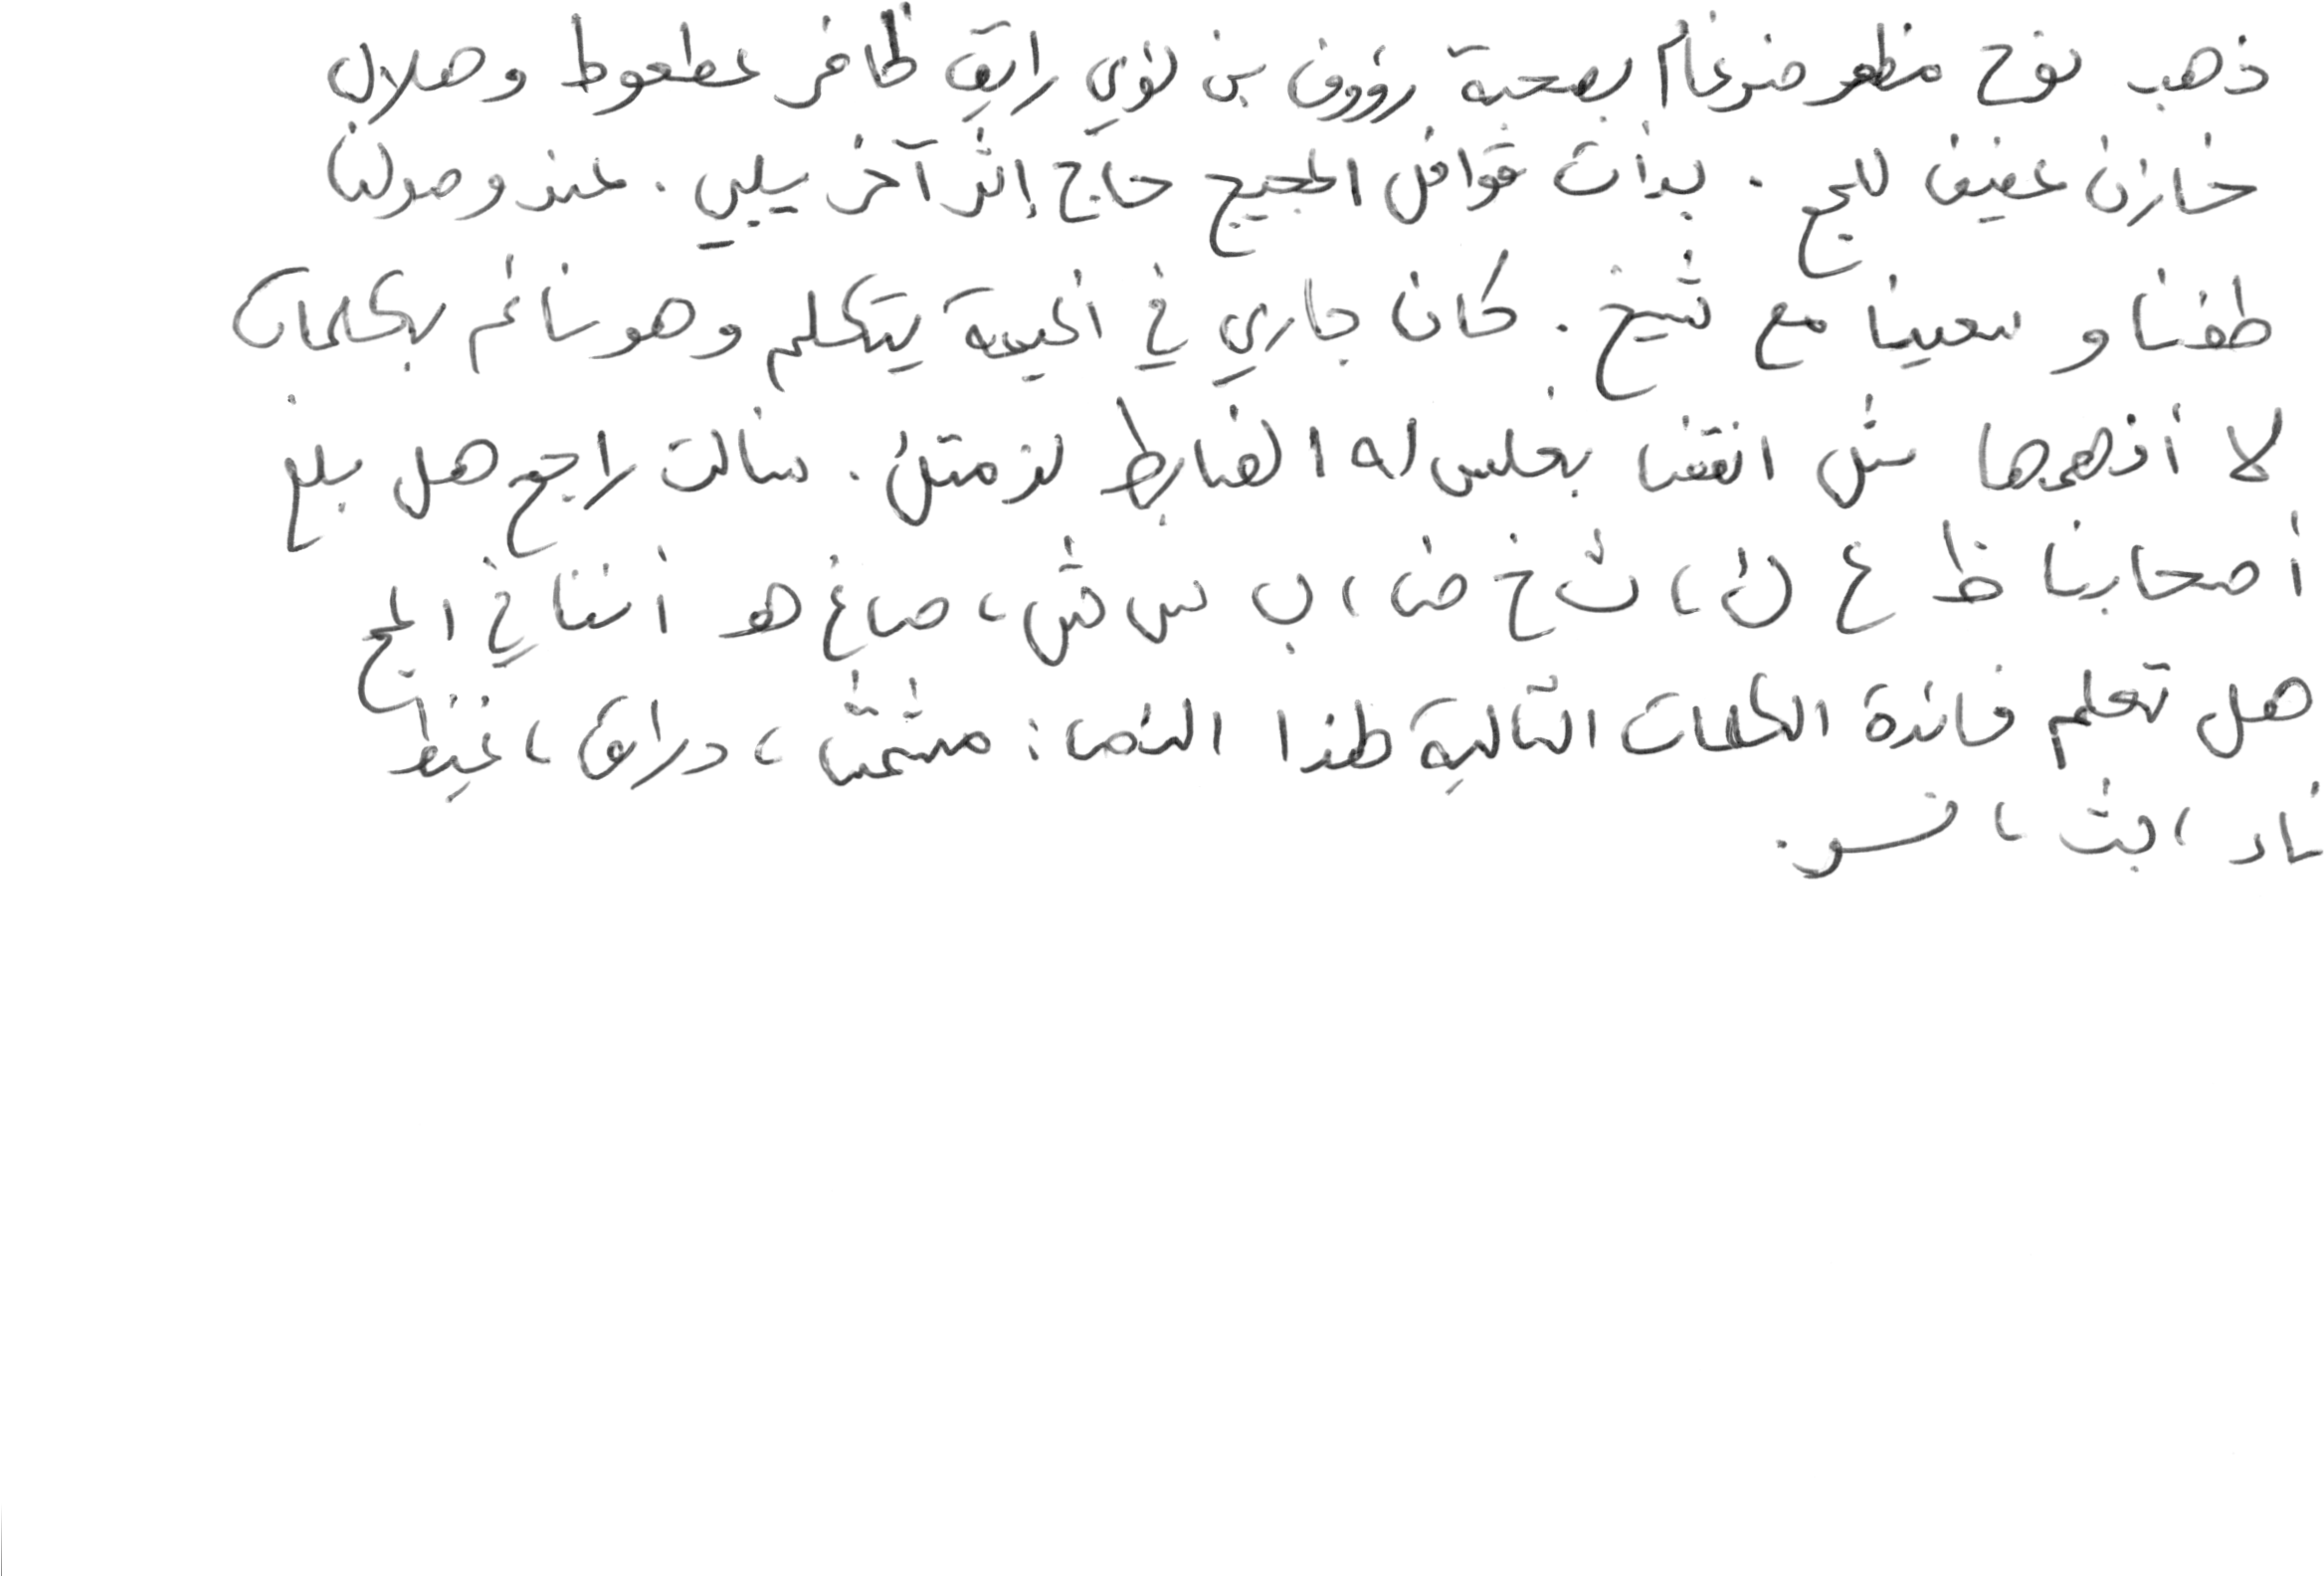 ذهب نوح مظفر ضرغام بصحبة رؤوف بن لؤي رايق ظافر عطعوط وهلال
خازن عفيف للحج . بدأت قوافل الحجيج حاج إثر آخر يلبي . عند وصولنا
طفنا و سعينا مع شيخ . كان جاري في الخيمة يتكلم وهو نائم بكلمات
لا أفهمها مثل انقضا بخلس له الضابط . سألت راجح هل بلغ
أصحابنا ظ غ ئ ، ث خ ض ، ب س ش ، صاغ هـ أننا في الحج
هل تعلم فائدة الكلمات التالية لهذا النص : مشمش ، دراق ،